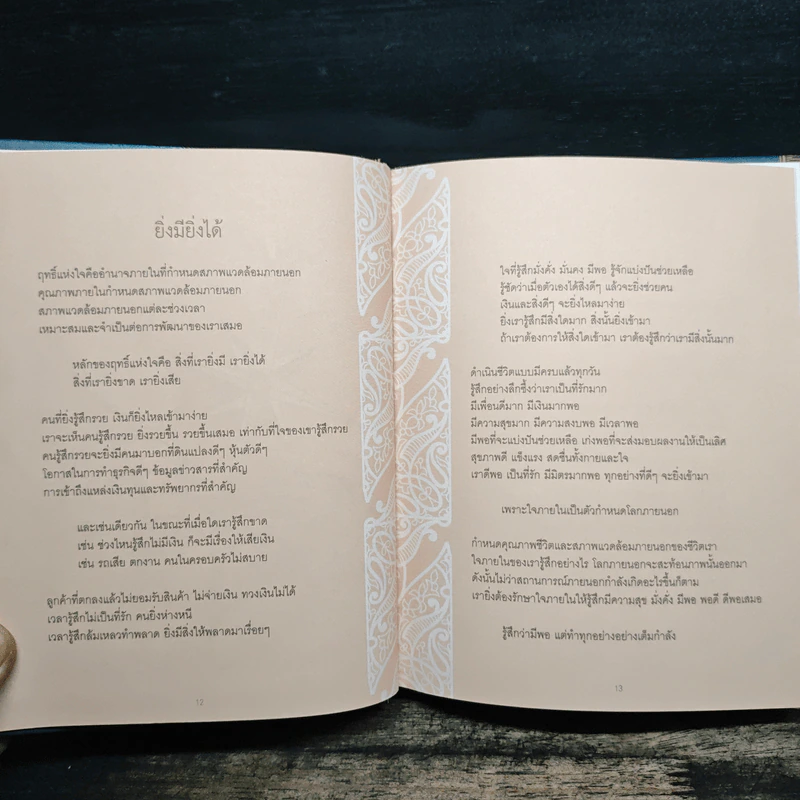 ยิ่งมียิ่งได้
ฤทธิ์แห่งใจคืออำนาจภายในที่กำหนดสภาพแวดล้อมภายนอก
คุณภาพภายในกำหนดสภาพแวดล้อมภายนอก
สภาพแวดล้อมภายนอกแต่ละช่วงเวลา
เหมาะสมและจำเป็นต่อการพัฒนาของเราเสมอ
หลักของฤทธิ์แห่งใจคือ สิ่งที่เรายิ่งมี เรายิ่งได้
สิ่งที่เรายิ่งขาด เรายิ่งเสีย
คนที่ยิ่งรู้สึกรวย เงินก็ยิ่งไหลเข้ามาง่าย
เราจะเห็นคนรู้สึกรวย ยิ่งรวยขึ้น รวยขึ้นเสมอ เท่ากับที่ใจของเขารู้สึกรวย
คนรู้สึกรวยจะยิ่งมีคนมาบอกที่ดินแปลงดีๆ หุ้นตัวดีๆ
โอกาสในการทำธุรกิจดีๆ ข้อมูลข่าวสารที่สำคัญ
การเข้าถึงแหล่งเงินทุนและทรัพยากรที่สำคัญ
และเช่นเดียวกัน ในขณะที่เมื่อใดเรารู้สึกขาด
เช่น ช่วงไหนรู้สึกไม่มีเงิน ก็จะมีเรื่องให้เสียเงิน
เช่น รถเสีย ตกงาน คนในครอบครัวไม่สบาย
ลูกค้าที่ตกลงแล้วไม่ยอมรับสินค้า ไม่จ่ายเงิน ทวงเงินไม่ได้
เวลารู้สึกไม่เป็นที่รัก คนยิ่งห่างหนี
เวลารู้สึกล้มเหลวทำพลาด ยิ่งมีสิ่งให้พลาดมาเรื่อยๆ
12
ใจที่รู้สึกมั่งคั่ง มั่นคง มีพอ รู้จักแบ่งปันช่วยเหลือ
รู้ชัดว่าเมื่อตัวเองได้สิ่งดีๆ แล้วจะยิ่งช่วยคน
เงินและสิ่งดีๆ จะยิ่งไหลมาง่าย
ยิ่งเรารู้สึกมีสิ่งใดมาก สิ่งนั้นยิ่งเข้ามา
ถ้าเราต้องการให้สิ่งใดเข้ามา เราต้องรู้สึกว่าเรามีสิ่งนั้นมาก
ดำเนินชีวิตแบบมีครบแล้วทุกวัน
รู้สึกอย่างลึกซึ้งว่าเราเป็นที่รักมาก
มีเพื่อนดีมาก มีเงินมากพอ
มีความสุขมาก มีความสงบพอ มีเวลาพอ
มีพอที่จะแบ่งปันช่วยเหลือ เก่งพอที่จะส่งมอบผลงานให้เป็นเลิศ
สุขภาพดี แข็งแรง สดชื่นทั้งกายและใจ
เราดีพอ เป็นที่รัก มีมิตรมากพอ ทุกอย่างที่ดีๆ จะยิ่งเข้ามา
เพราะใจภายในเป็นตัวกำหนดโลกภายนอก
กำหนดคุณภาพชีวิตและสภาพแวดล้อมภายนอกของชีวิตเรา
ใจภายในของเรารู้สึกอย่างไร โลกภายนอกจะสะท้อนภาพนั้นออกมา
ดังนั้นไม่ว่าสถานการณ์ภายนอกกำลังเกิดอะไรขึ้นก็ตาม
เรายิ่งต้องรักษาใจภายในให้รู้สึกมีความสุข มั่งคั่ง มีพอ พอดี ดีพอเสมอ
รู้สึกว่ามีพอ แต่ทำทุกอย่างอย่างเต็มกำลัง
13